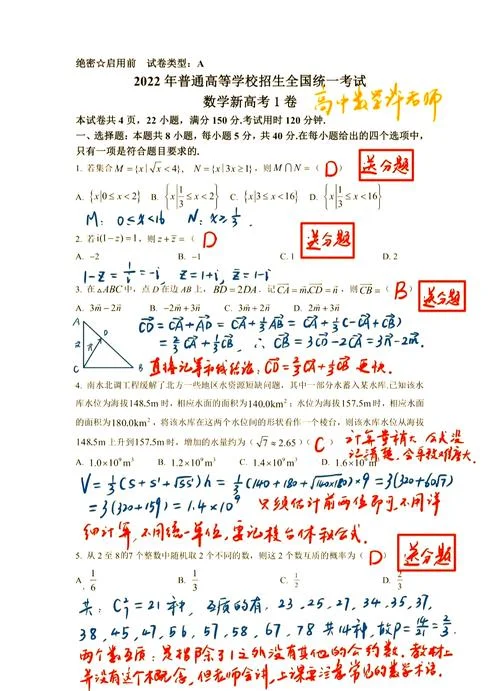 绝密☆启用前 试卷类型：A
2022年普通高等学校招生全国统一考试
数学新高考1卷 高中数学许老师
本试卷共4页，22小题，满分150分.考试用时120分钟.
一、选择题：本题共8小题，每小题5分，共40分.在每小题给出的四个选项中，
只有一项是符合题目要求的.
1. 若集合M={x|√x<4}, N={x|3x≥1}，则M∩N=（ D ） 送分题
A. {x|0≤x<2} B. {x|1/3≤x<2} C. {x|3≤x<16} D. {x|1/3≤x<16}
M: 0≤x<16 N: x≥1/3.
2. 若i(1-z)=1，则z+z̄=（ D 送分题
A. -2 B. -1 C. 1 D. 2
1-z=1/i=-i, z=1+i, z̄=1-i
3. 在△ABC中，点D在边AB上，BD=2DA．记CA=m,CD=n，则CB=（ B ） 送分题
A. 3m-2n B. -2m+3n C. 3m+2n D. 2m+3n
A D C B 2
CD=CA+AD=CA+1/3AB=CA+1/3(-CA+CB)
=2/3CA+1/3CB, ∴CB=3CD-2CA=3n-2m.
直接记算和线结论: CD=2/3CA+1/3CB 更快.
4. 南水北调工程缓解了北方一些地区水资源短缺问题，其中一部分水蓄入某水库.已知该水
库水位为海拔148.5m时，相应水面的面积为140.0km²；水位为海拔157.5m时，相应水面
的面积为180.0km²，将该水库在这两个水位间的形状看作一个棱台，则该水库水位从海拔
148.5m上升到157.5m时，增加的水量约为（√7≈2.65）( C ) 计算量稍大 公式没
记清楚，会导致难度大.
A. 1.0×10⁹m³ B. 1.2×10⁹m³ C. 1.4×10⁹m³ D. 1.6×10⁹m³
V=1/3(S+S'+√SS')h=1/3(140+180+√140×180)×9=3(320+60√7)
=3(320+159)=1.4×10⁹ 只须估计前两位即可,不用详
细计算,不用统一单位,要记棱台体积公式.
5. 从2至8的7个整数中随机取2个不同的数，则这2个数互质的概率为（ D ） 送分题
A. 1/6 B. 1/3 C. 1/2 D. 2/3
共: C₇²=21种, 互质的有, 23, 25, 27, 34, 35, 37,
38, 45, 47, 56, 57, 58, 67, 78 共14种, 故P=14/21=2/3.
两个数互质: 是指除了1之外没有其他的公约数. 教材上
并没有这个概念, 但老师会讲, 上课要注意常见的数学术语.